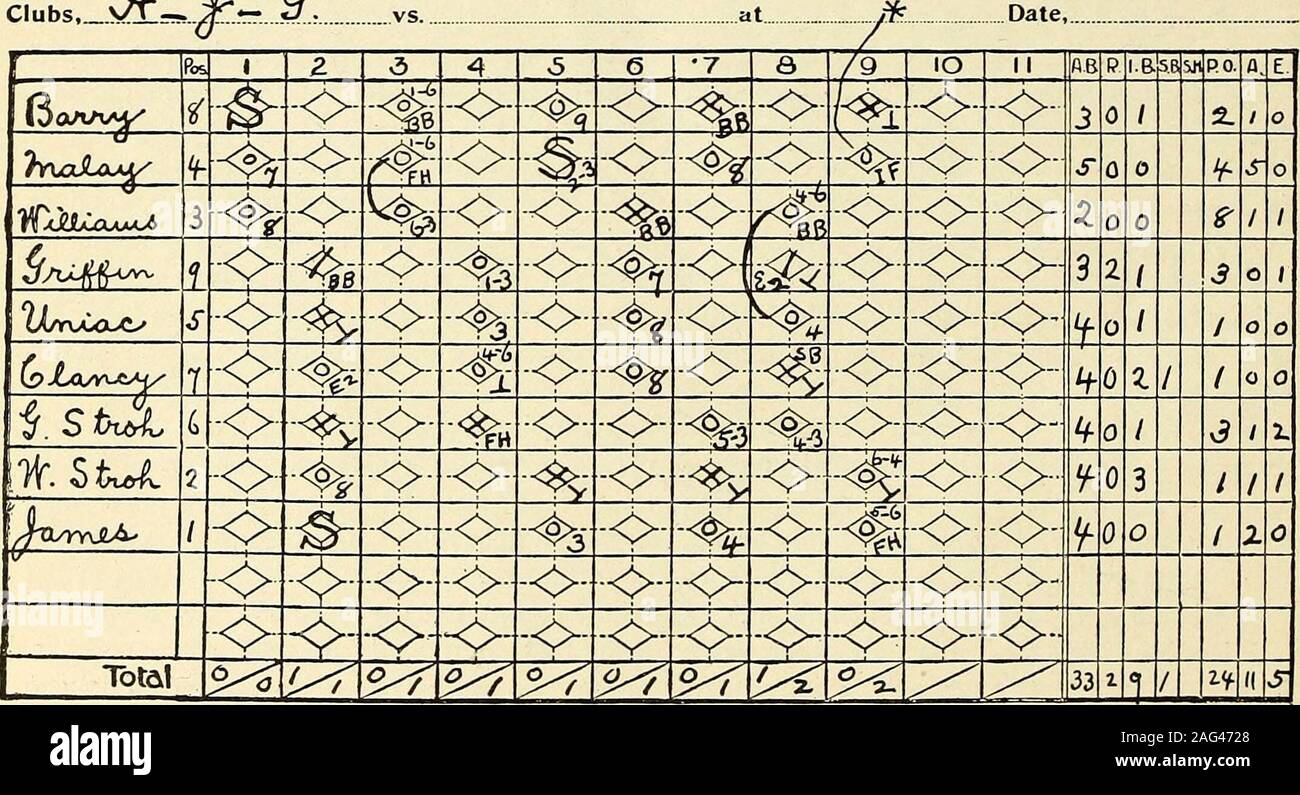 Clubs, A-J-G. vs. at * Date,
Pos. 1 2 3 4 5 6 7 8 9 10 11 A.B. R. 1.B. S.B. S.H. P.O. A. E.
Barry 8 S 1-6 BB 9 BB 3 0 1 2 1 0
Malay 4 7 1-6 FH S 2-3 8 IF 5 0 0 4 5 0
Williams 3 8 6-3 BB 4-6 BB 2 0 0 8 1 1
Griffin 9 BB 1-3 7 E-2 3 2 1 3 0 1
Uniac 5 3 8 4 4 0 1 1 0 0
Clancy 7 E2 4-6 8 SB 4 0 2 1 1 0 0
G. Stroh 6 FH 5-3 4-3 4 0 1 3 1 2
W. Stroh 2 8 6-4 4 0 3 1 1 1
James 1 S 3 4 5-6 FH 4 0 0 1 2 0
Total 0/0 1/1 0/1 0/1 0/1 0/1 0/1 1/2 0/2 / / 33 2 9 1 24 11 5
alamy
alamy
Image ID: 2AG4728
www.alamy.com